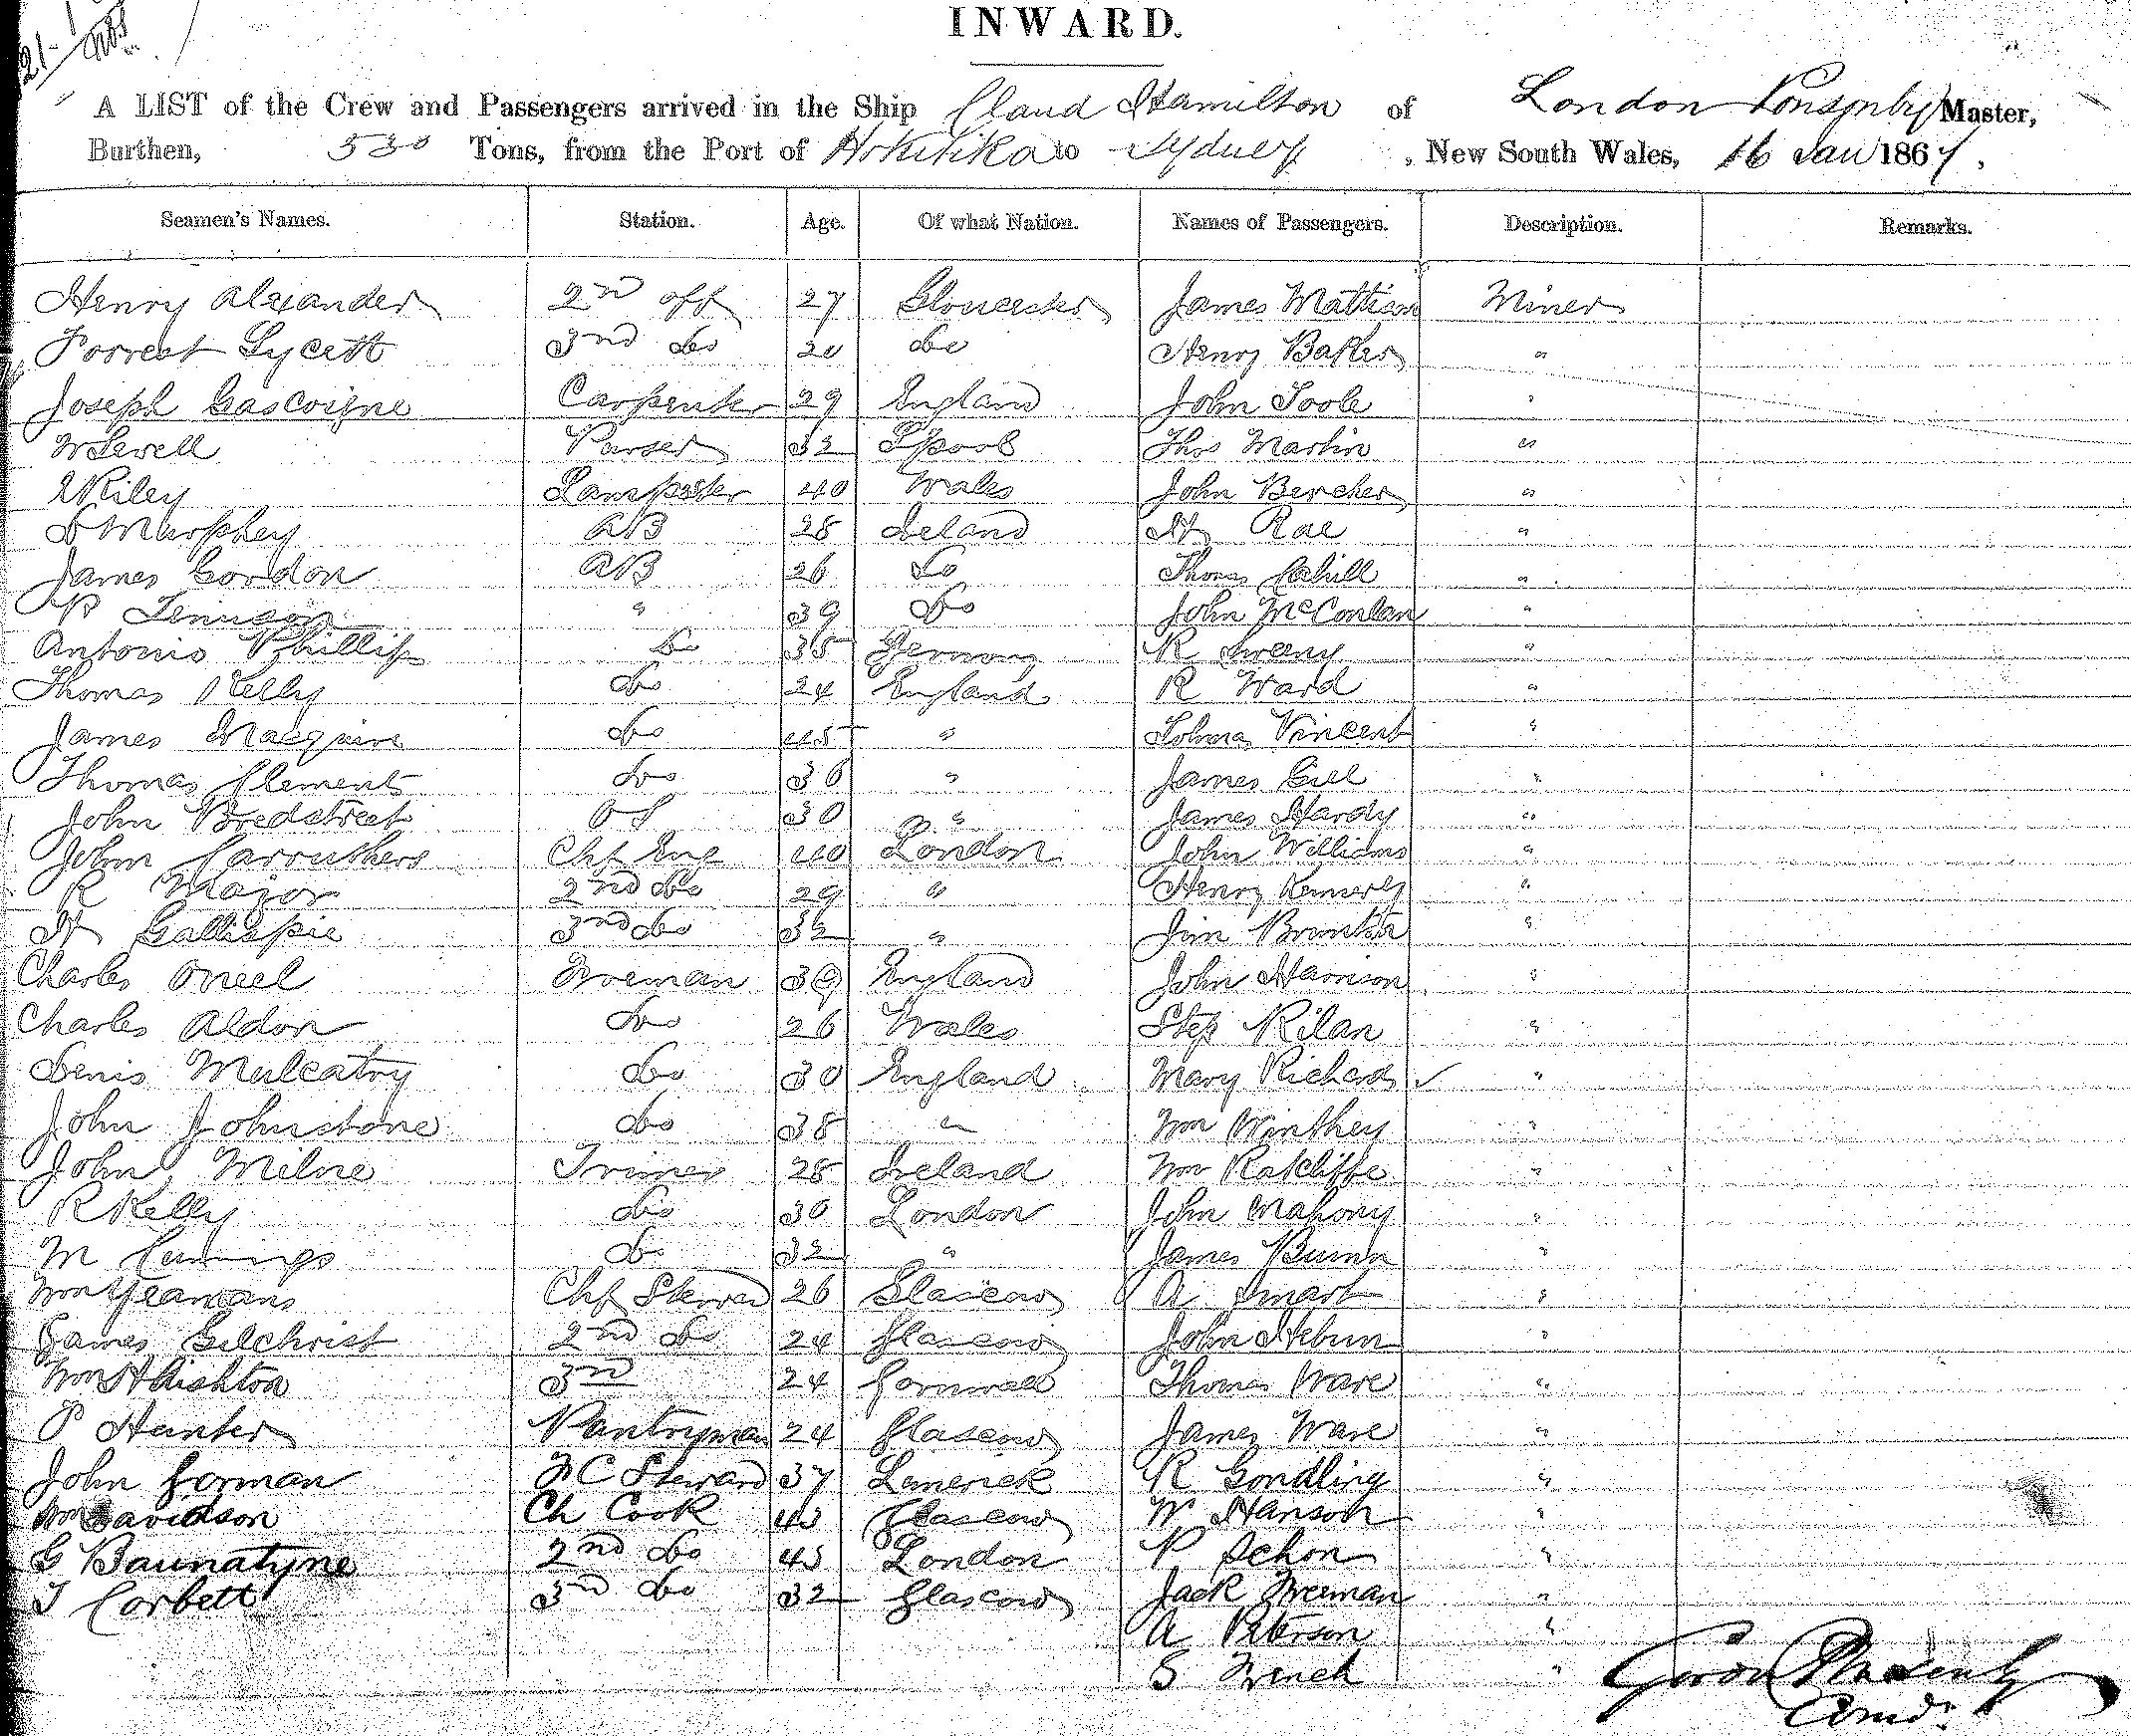 INWARD.
A LIST of the Crew and Passengers arrived in the Ship Claud Hamilton of London Ponsonby Master,
Burthen, 530 Tons, from the Port of Hokitika to Sydney, New South Wales, 16 Jan 1867.
Seamen's Names. Station. Age. Of what Nation. Names of Passengers. Description. Remarks.
Henry Alexander 2nd off 27 Gloucester James Mattison Miner
Forrest Lycett 3rd do 20 do Henry Baker "
Joseph Gascoigne Carpenter 29 England John Toole "
W Sewell Purser 32 L'pool Thos Martin "
Riley Lamps 40 Wales John Bercher "
D Murphey AB 28 Ireland Hy Rae "
James Gordon AB 26 do Thomas Cahill "
P " 39 do John McConlan "
Antonio Phillip do 35 Germany R Sweeny "
Thomas Kelly do 24 England R Ward "
James Macquire do 45 " Vincent "
Thomas Clement do 36 " James Gill "
John Bredstreet OS 30 " James Hardy "
John Carruthers Chf Eng 40 London John Williams "
R Major 2nd do 29 " Henry "
Hy Gallispie 3rd do 32 " Jim "
Charles Oneel Fireman 39 England John Harrison "
Charles Aldon do 26 Wales Step Rilan "
Denis Mulcatry do 30 England Mary Richards "
John Johnstone do 38 " Wm Winthey "
John Milne Trimer 28 Ireland Wm Ratcliffe "
R Kelly do 30 London John Mahony "
M Cummings do 32 " James Bunn "
Wm Yeamans Chf Steward 26 Glascow A Smart "
James Gilchrist 2nd do 24 Glascow John Hebun "
Wm 3rd 24 Cornwall Thomas Ware "
P Hunter Pantryman 24 Glascow James Ware "
John Gorman FC Steward 37 Limerick R Gondling "
Wm Davidson Ch Cook 43 Glascow W Hanson "
G Baunatyne 2nd do 45 London P Schon "
T Corbett 3rd do 32 Glascow Jack Freeman "
A Peterson "
S French "